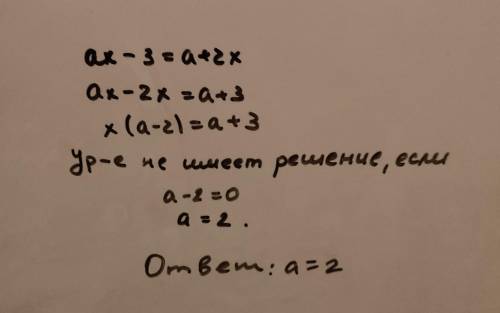 ax - 3 = a+2x
ax - 2x = a+3
x(a-2) = a+3
Ур-е не имеет решение, если
a-2=0
a=2.
Ответ: a=2